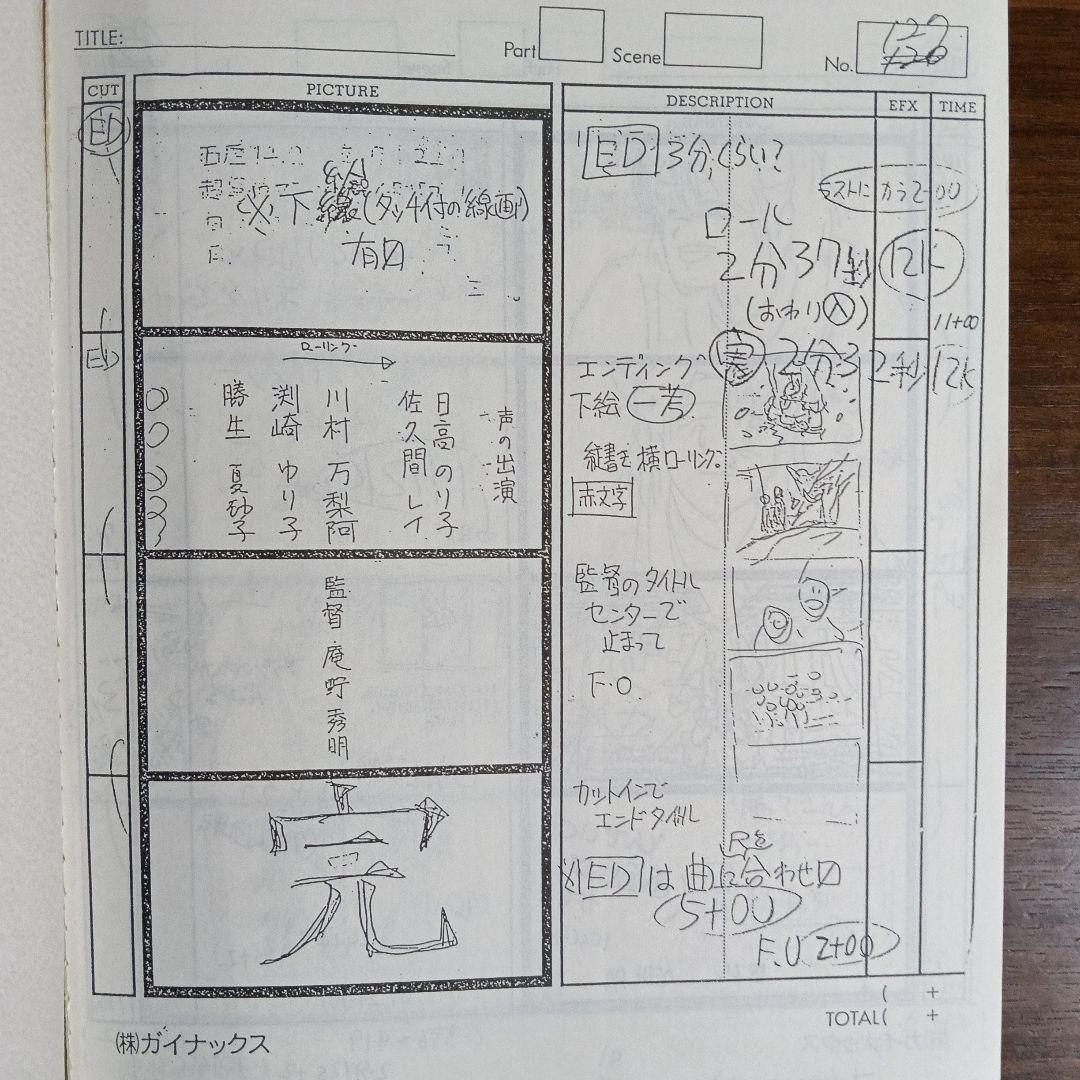 TITLE:
Part
Scene
No.
127
126
CUT
PICTURE
DESCRIPTION
EFX
TIME
ED
※下
絵
(タッチ付の線画)
有り
ED 3分くらい?
ラストに カラ2-00
ロール
2分37秒
12K
(おわり入)
11+00
ED
ローリング
声の出演
日高 のり子
佐久間 レイ
川村 万梨阿
渕崎 ゆり子
勝生 真砂子
エンディング
2分32秒 12K
下絵 一考
縦書を横ローリング
赤文字
監督 庵野 秀明
監督のタイトル
センターで
止まって
F.O.
完
カットインで
エンドタイトル
※ED は 曲に合わせ
5+00
F.O. 2+00
( +
TOTAL( +
㈱ガイナックス